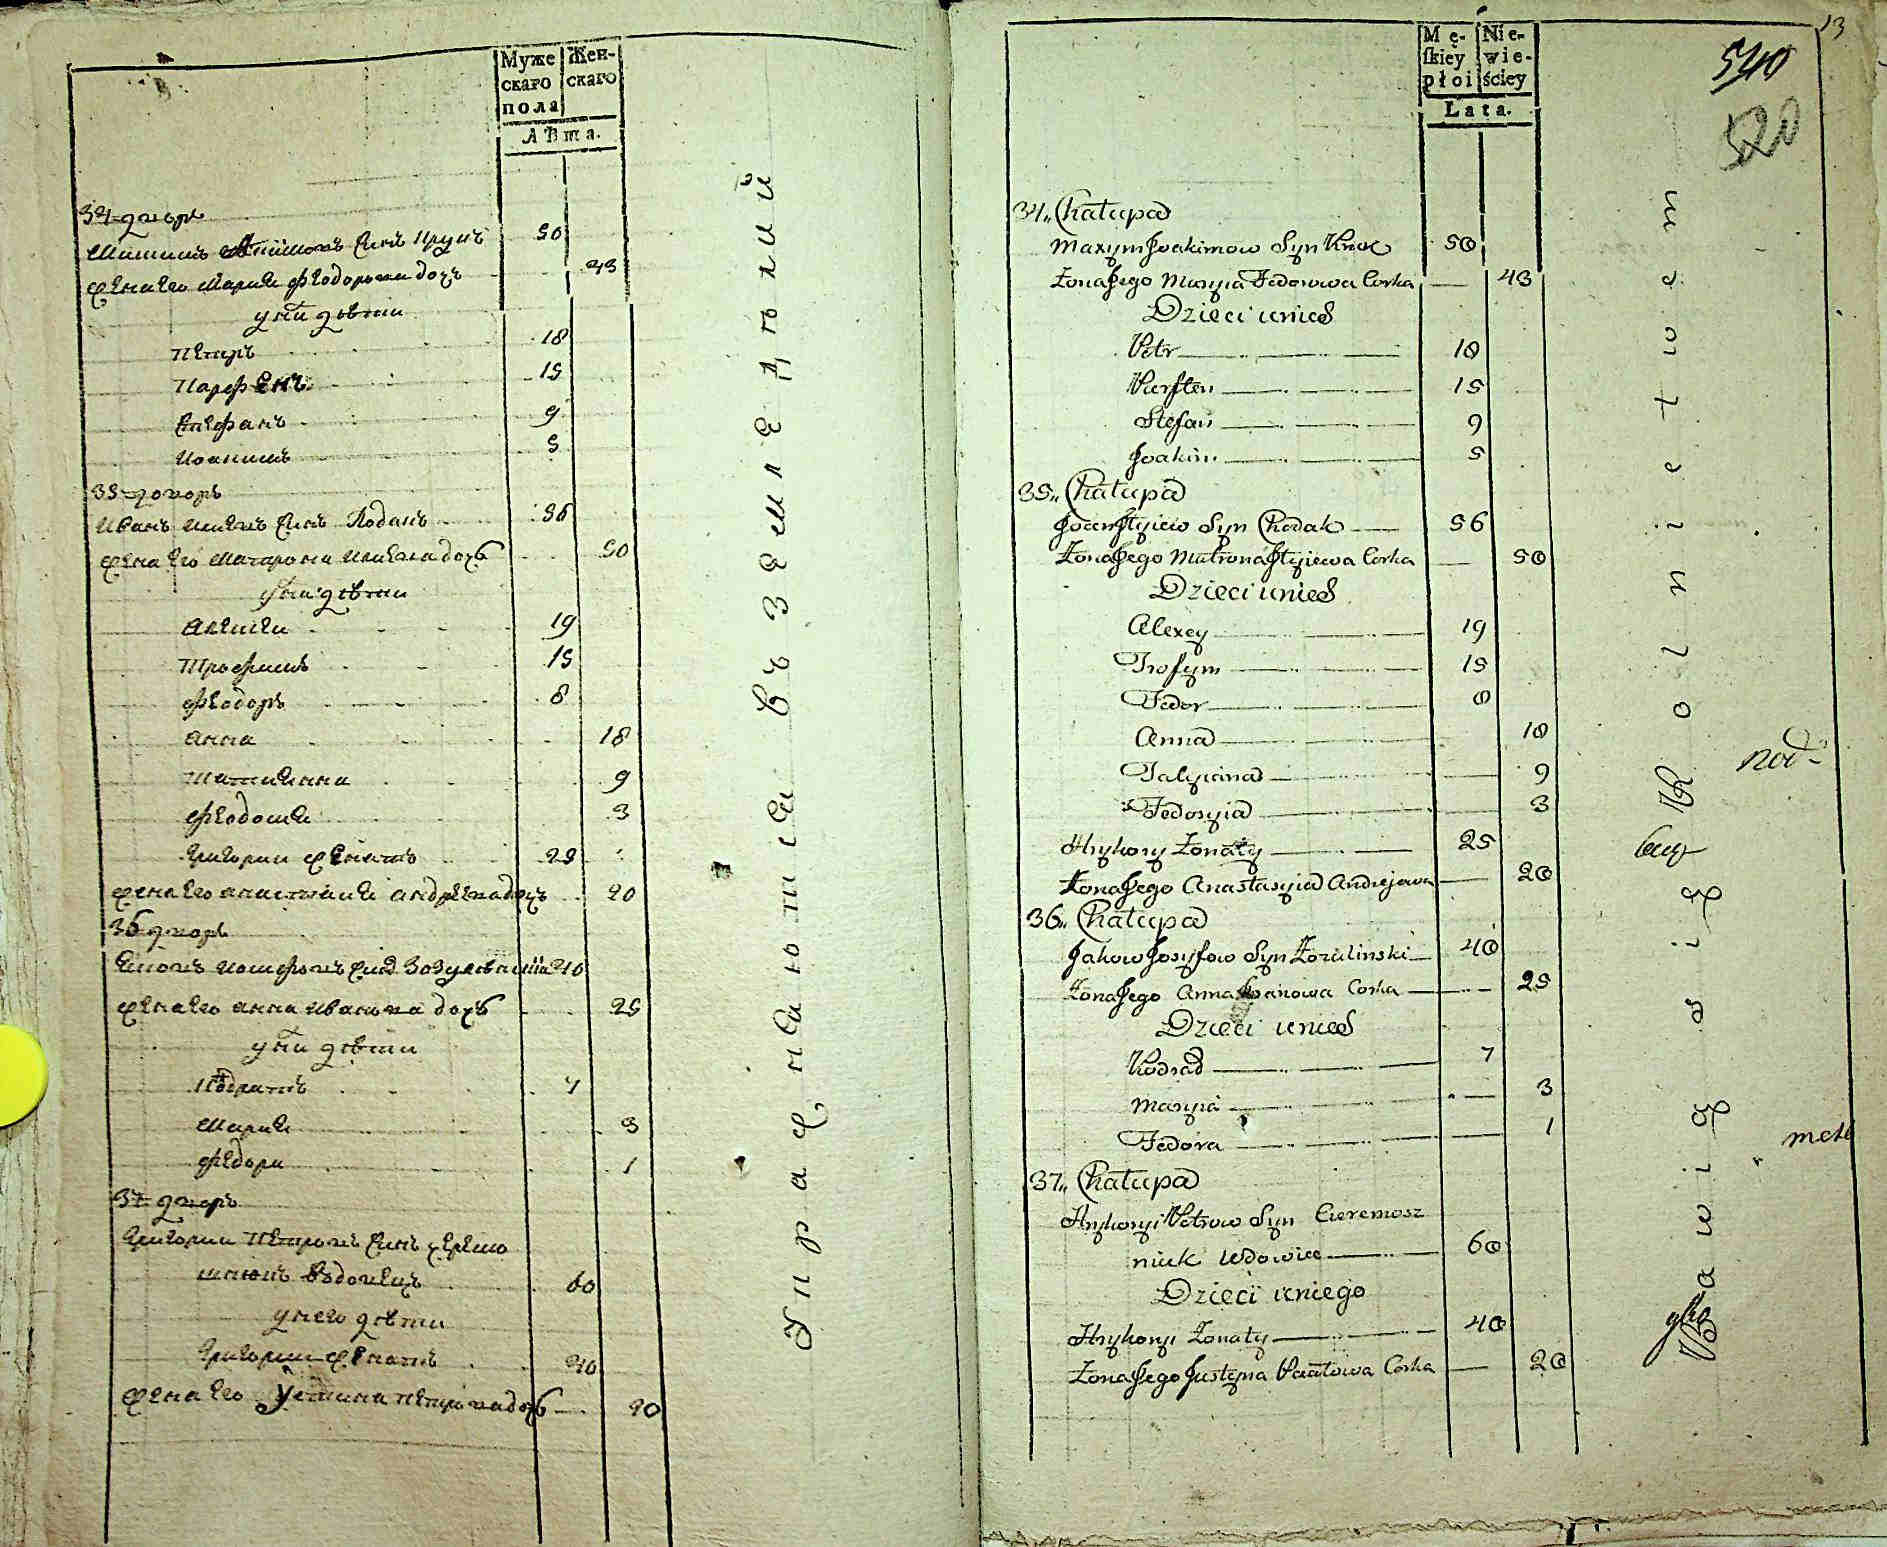 Муже
скаго
пола
Жен-
скаго
Лѣта.
34 дворъ
Максимъ сынъ 50
жена его Мария Феодорова дочь 43
у них дѣти
Петръ 18
Парфенъ 15
Стефанъ 9
Иоакимъ 5
35 дворъ
Иванъ сынъ Ходакъ 56
жена его Матрона дочь 50
дѣти
Алексеи 19
Трофимъ 15
Феодоръ 8
Анна 18
Татиянна 9
Феодосия 3
Григории женатъ 25
жена его Анастасия Андреева дочь 20
36 дворъ
Иосифовъ сынъ 40
жена его Анна Иванова дочь 25
у них дѣти
Кодратъ 7
Мария 3
Федора 1
37 дворъ
Григории Петровъ сынъ Черемо
шнюкъ вдовецъ 60
у него дѣти
Григории женатъ 40
жена его Устина дочь 20
Упражняются въ земледѣлий
13
540
520
Mę-
skiey
płoi
Nie-
wie-
ściey
Lata.
34,, Chałupa
Maxym Joakimow Syn Kruk 50
Żona Jego Maryia Fedorowa Corka 43
Dzieci u nich
Petr 18
Parften 15
Stefan 9
Joakim 5
35,, Chałupa
Syn Chodak 56
Żona Jego Matrona Corka 50
Dzieci u nich
Alexey 19
Trofym 15
Fedor 8
Anna 18
Tatyianna 9
Fedosyia 3
Hryhory Żonaty 25
Żona Jego Anastasyia Andrejowa 20
36,, Chałupa
Jakow Josyfow Syn Zozulinski 40
Żona Jego Anna Iwanowa Corka 25
Dzieci u nich
Kodrad 7
Maryia 3
Fedora 1
37,, Chałupa
Hryhoryi Petrow Syn Czeremosz
niuk Wdowiec 60
Dzieci u niego
Hryhoryi Żonaty 40
Żona Jego Justyna Corka 20
Bawią się Rolnictwem